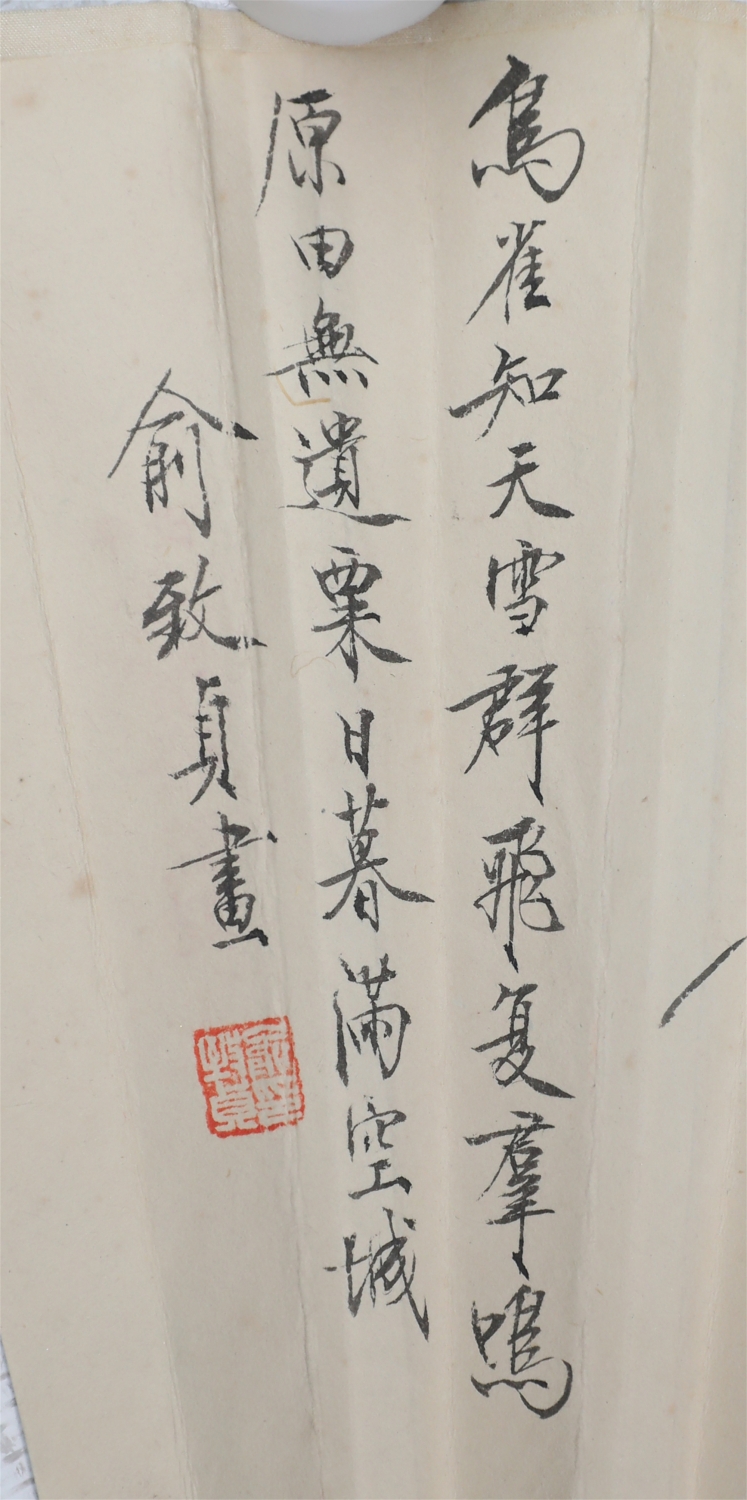 烏雀知天雪群飛复羣鳴
原田無遺粟日暮滿空城
俞致貞畫